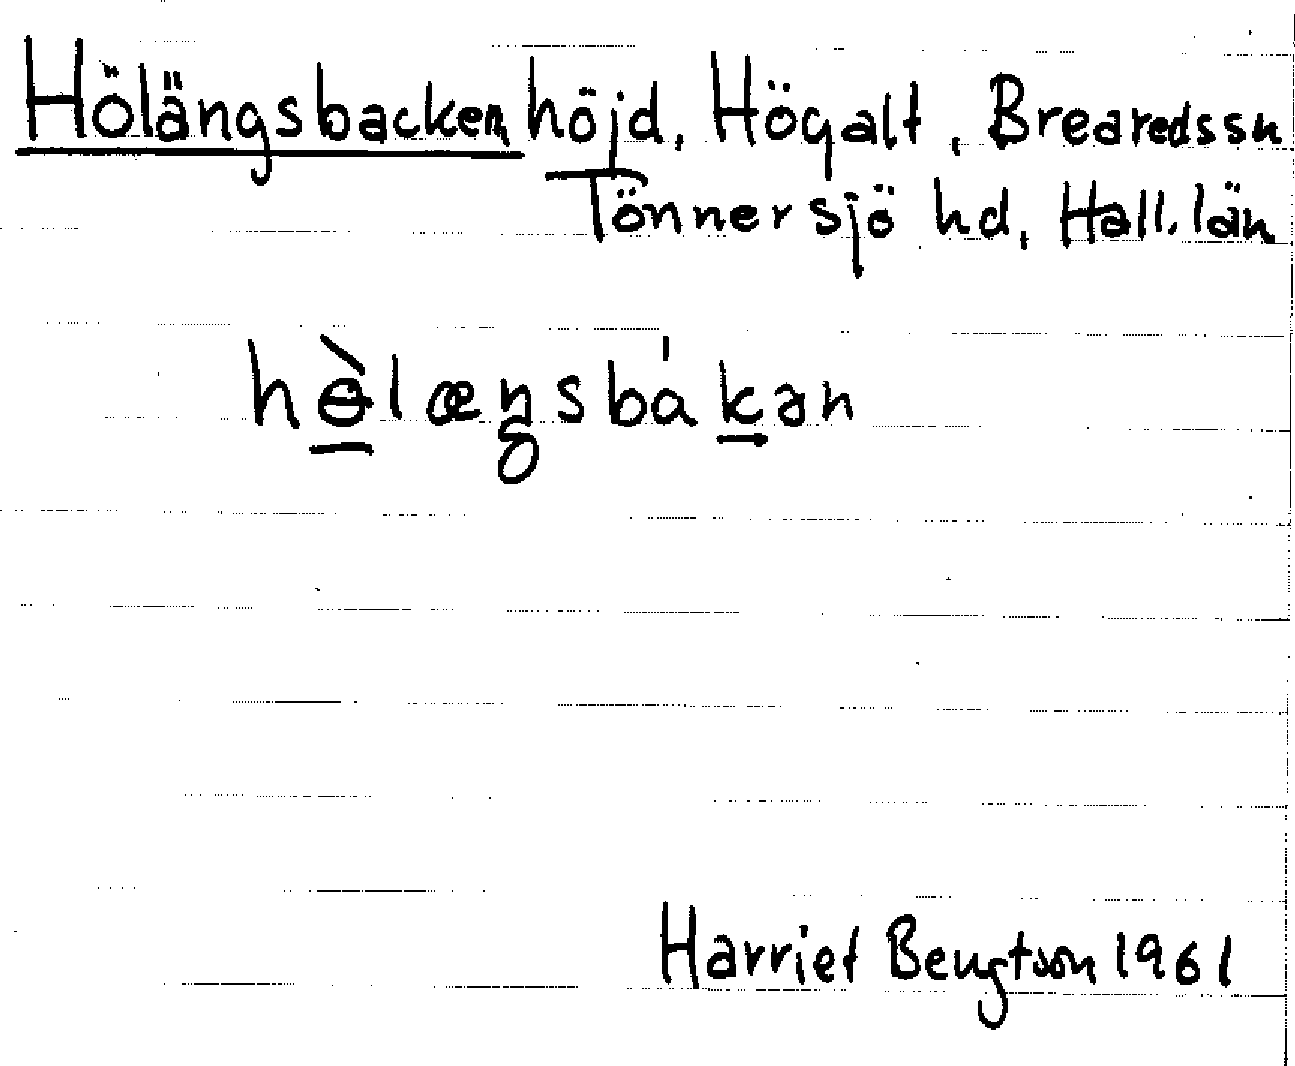 Hölängsbacken höjd, Högalt, Breardssn
Tönnersjö hd, Hall. län
hɵ̀læŋsbákən
Harriet Bengtson 1961